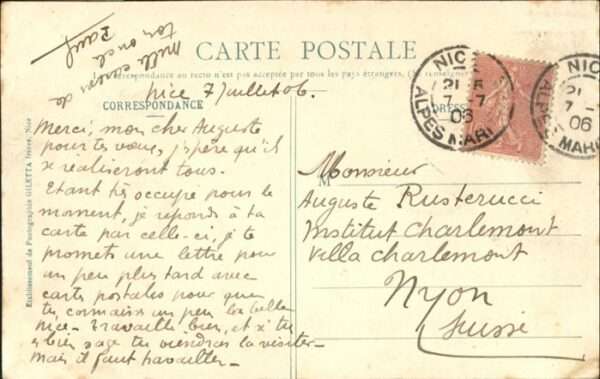 CARTE POSTALE
La Correspondance au recto n'est pas acceptée par tous les pays étrangers. (Se renseigner
CORRESPONDANCE
ADRESSE
Nice 7 Juillet 06.
Merci, mon cher Auguste
pour tes voeux, j'espère qu'ils
se réaliseront tous.
Etant très occupé pour le
moment, je réponds à ta
carte par celle-ci, je te
promets une lettre pour
un peu plus tard avec
cartes postales pour que
tu connaisses un peu la belle
Nice - travaille bien, et si tu
es bien sage tu viendras la visiter -
mais il faut travailler -
Mille caresses de
ton oncle
Monsieur
Auguste Rusterucci
Institut Charlemont
Villa Charlemont
Nyon
Suisse
NICE
21 5
7 - 7
06
ALPES MARI
NIC
21
7 -
06
ALPES MARI
Etablissement de Photographie GILETTA frères, Nice